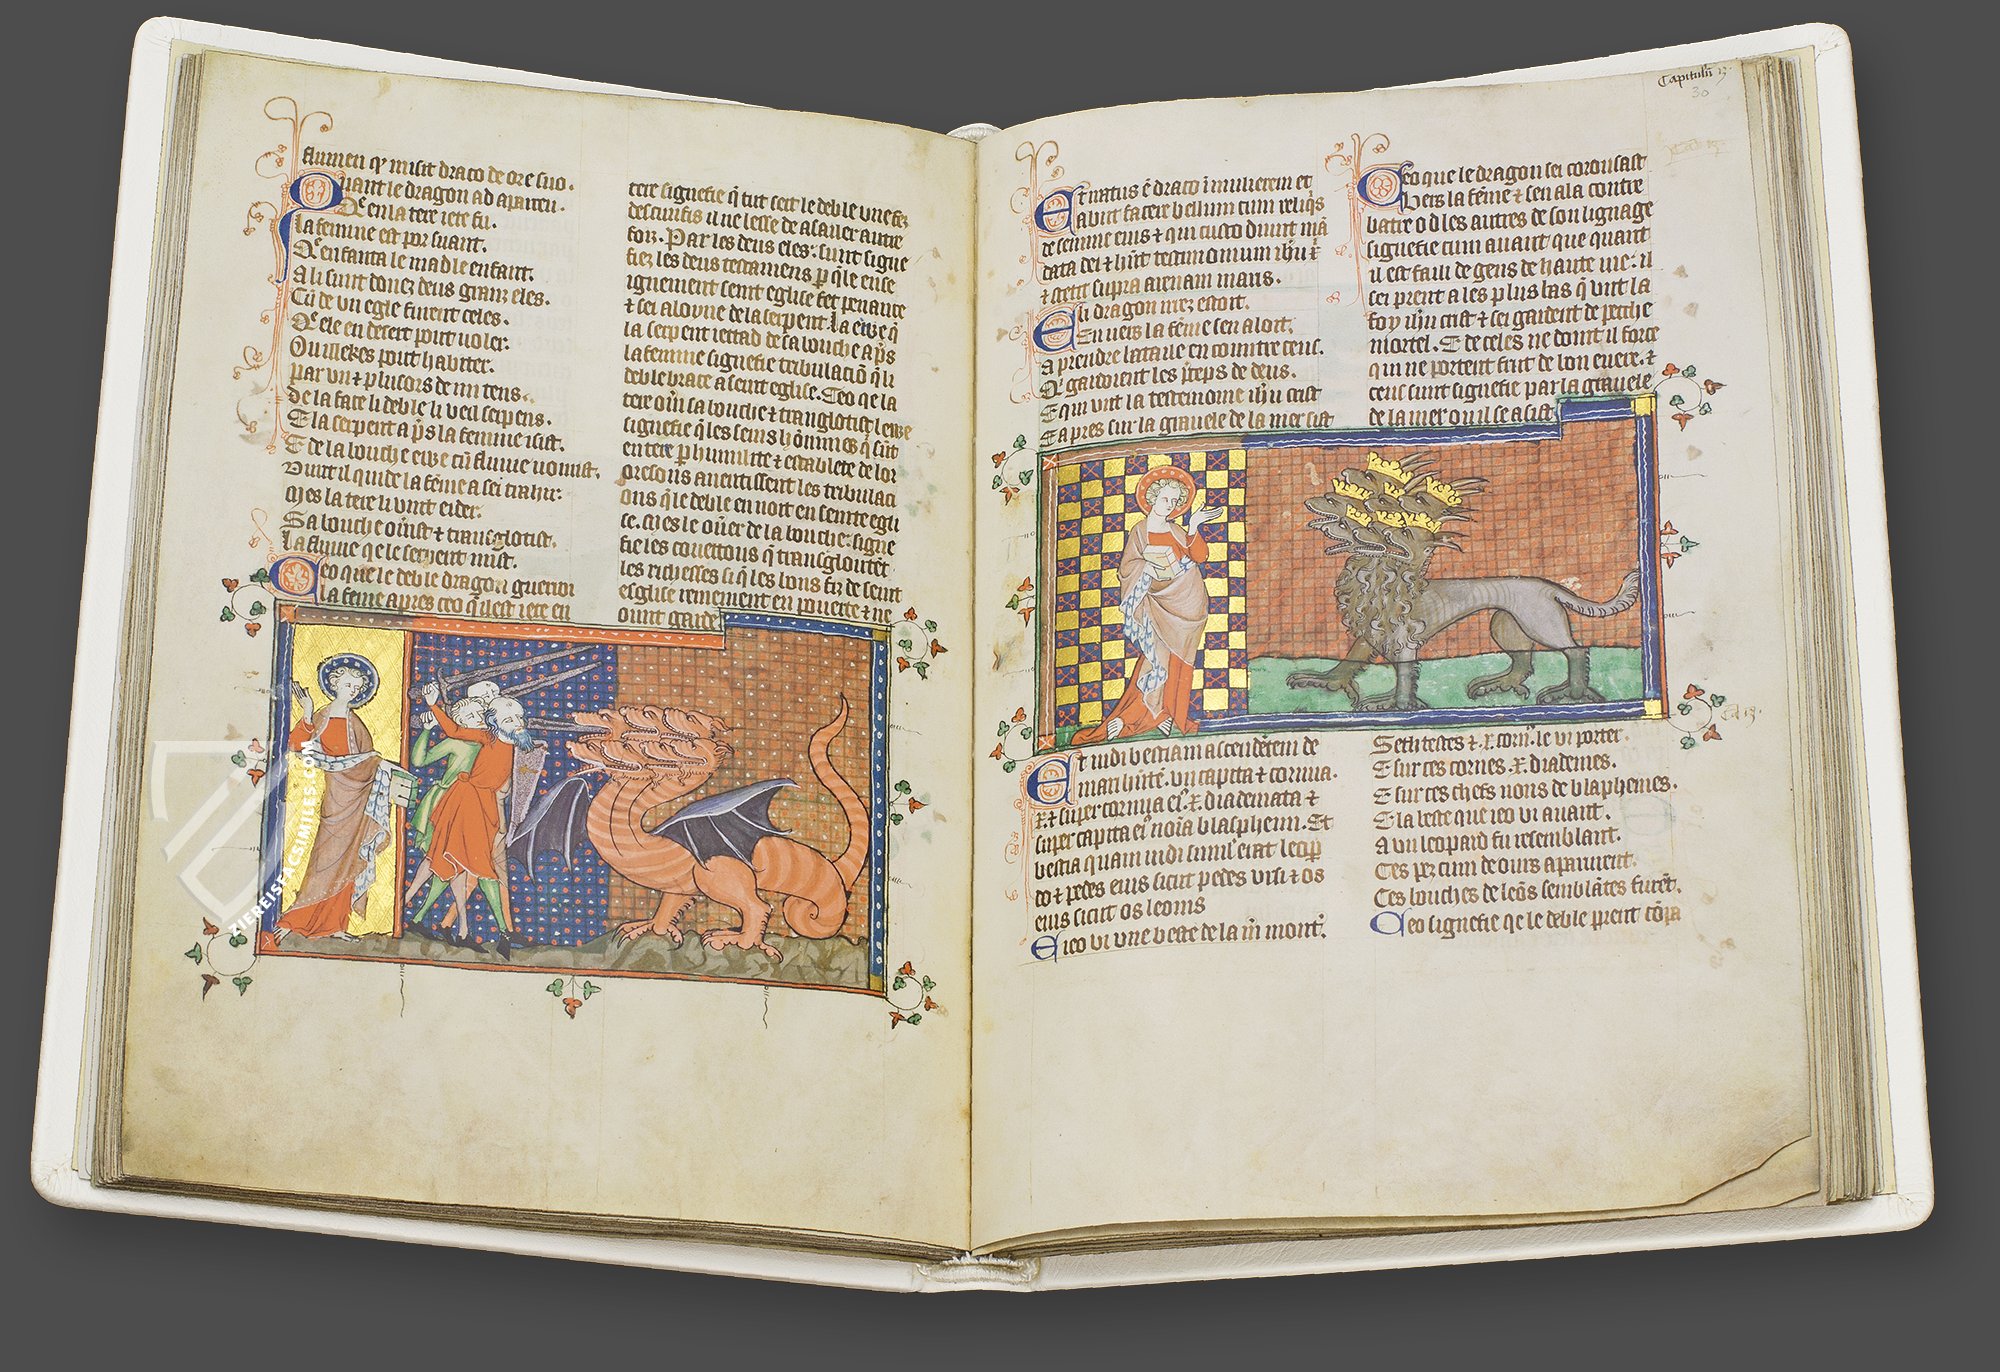 flumen qͥ misit draco de ore suo.
Quant le dragon ad aparceu.
Qe en la tere iete fu.
la femme est por suant.
Qe enfanta le madle enfant.
A li sunt donez deus granz eles.
Cū de un egle furent celes.
Qe ele en desert pout uoler.
Ou illekes pout habiter.
Par un & plusors de mi tens.
De la face li deble li ueil serpens.
E la serpent a pͥs la femme isist.
E de la bouche ewe cū fluuie uomist.
Mes la tere li uint eider.
Sa bouche ouist & transglotist.
la fluuie qe le serpent mist.
Ceo que le deble dragon guerroi
la feme apres ceo qͥl est iete en
tere signefie q̄ tut seit le deble une fez
descunfis il ne lesse de asailer autre
foiz. Par les deus eles: sunt signe
fiez les deus testamens
ignement seint eglise fet penance
& sei aloyne de la serpent. la ewe q̄
la serpent iettad de sa bouche a pͥs
la femme signefie tribulaciō qͥ li
deble brace a seint eglise. Ceo qe la
tere ouͥi sa bouche & transglotist lewe
signefie q̄ les seins hōmmes q̄ sūt
en tere ꝑ humilite & establete de lor
oresons anentissent les tribulaci
ons q̄ le deble en uoit en seinte egli
se. Mes le ouͥer de la bouche: signe
fie les coueitous q̄ transgloutēt
les richesses si q̄ les bons fiz de seint
esglise remeinent en pouerte & ne
ount garde
Capitulū 13.
30
Et iratus ē draco ī mulierem et
abiit facere bellum cum reliqͥs
de semine eius & qui custodiunt mā
data dei & hūt testimonium ihū xͥ
& stetit supra arenam maris.
E li dragon irez estoit.
En uers la fēme sen aloit.
A prendre bataile en countre ceus.
Qi gardoient les pͥceps de deus.
E qui unt la testemoine ihū crist
E apres sur la grauele de la mer sist
Ceo que le dragon sei corousast
uers la fēme & sen ala contre
batre od les autres de son lignage
signefie cum auant que quant
il est failli de gens de haute uie: il
sei prent a les plus bas q̄ unt la
foy ihū crist & sei gardent de peche
mortel. E de celes ne dount il force
qui ne portent frut de bon euere. &
ceus sunt signefie par la grauele
de la mer ou il se asist.
Et uidi bestiam ascendētem de
mari hūtē. vij capita & cornua.
x. & super cornua eiͥ. x diademata &
super capita eiͥ noīa blasphemi. Et
bestia quam uidi similͥ erat leopͣ
do & pedes eius sicut pedes ursi & os
eius sicut os leonis
E ieo ui une beste de la mͥ mont.
Set testes & .x. cornͥ. le ui porter.
E sur ces cornes .x. diademes.
E sur ces chefs nons de blaphemes.
E la beste que ieo ui auant.
A un leopard fu resemblant.
Ces pez cum de ours aparurent.
Ces bouches de leōs semblātes furēt.
Ceo signefie qe le deble prent cōpa
ZIEREISFACSIMILES.COM